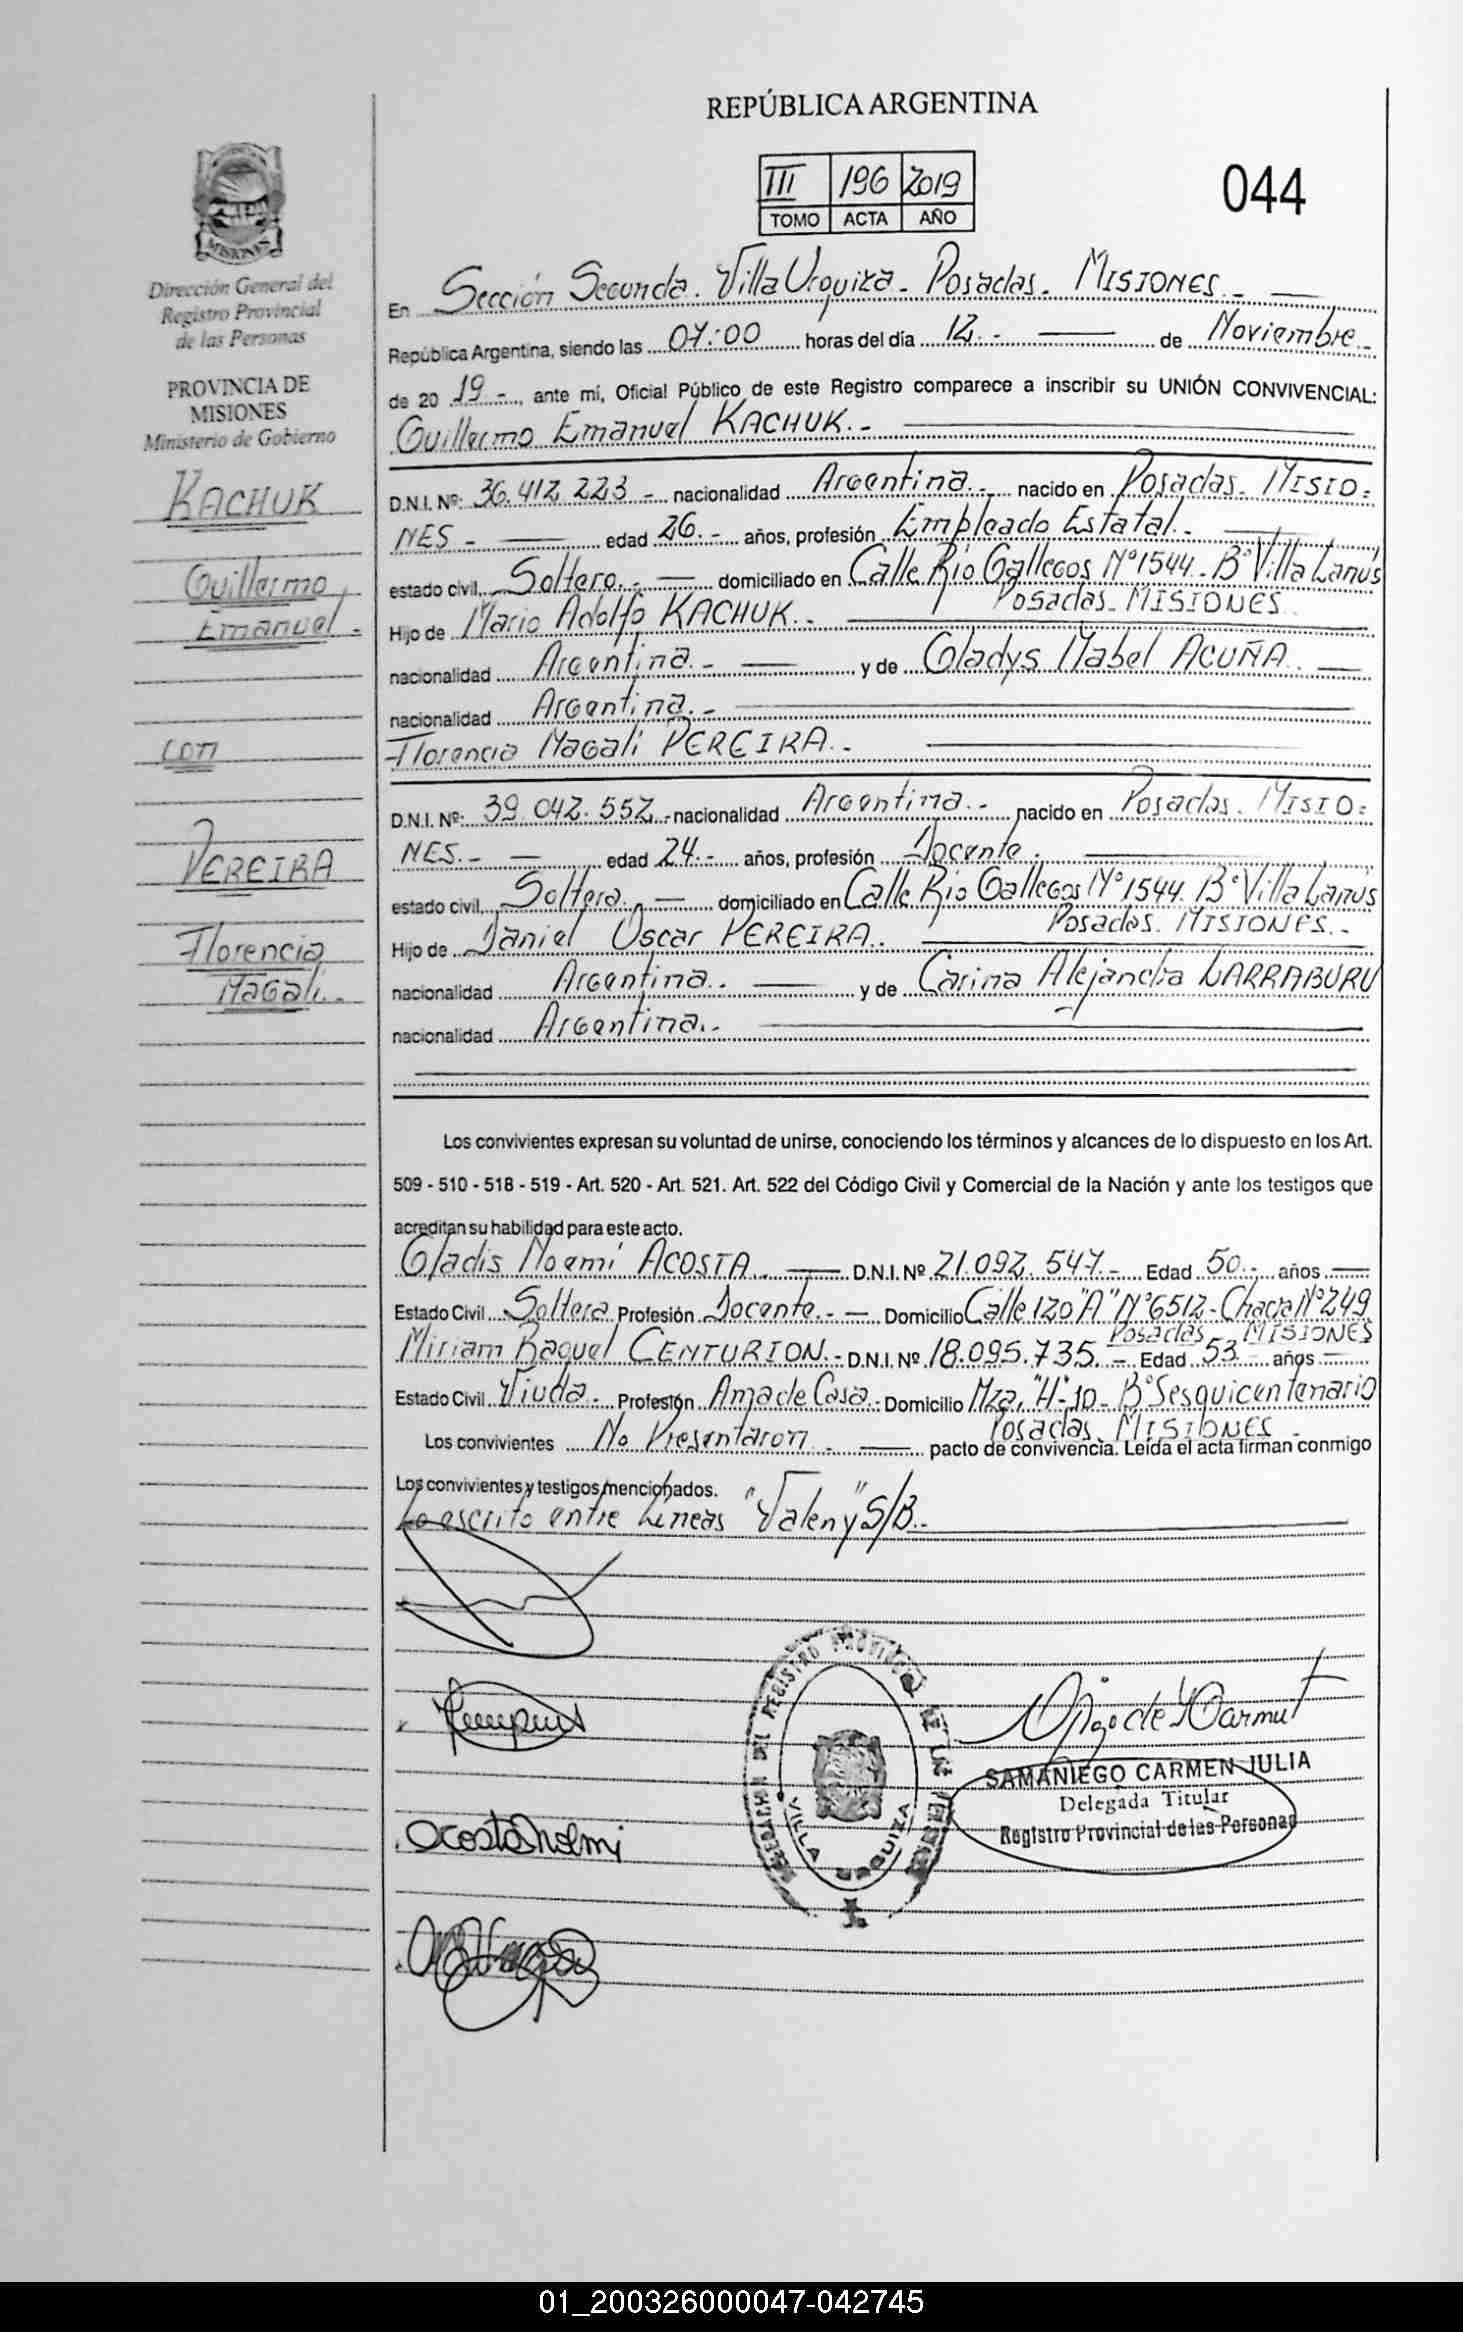 REPÚBLICA ARGENTINA
III 196 2019
TOMO ACTA AÑO
044
MISIONES
Dirección General del
Registro Provincial
de las Personas
PROVINCIA DE
MISIONES
Ministerio de Gobierno
KACHUK
Guillermo
Emanuel.-
con
PEREIRA
Florencia
Magali.-
En Sección Segunda. Villa Urquiza.- Posadas.- MISIONES.-
República Argentina, siendo las 07:00 horas del día 12.- de Noviembre.-
de 20 19.-, ante mí, Oficial Público de este Registro comparece a inscribir su UNIÓN CONVIVENCIAL:
Guillermo Emanuel KACHUK.-
D.N.I. Nº: 36.412.223.- nacionalidad Argentina.- nacido en Posadas.- MISIO=
NES.- edad 26.- años, profesión Empleado Estatal.-
estado civil Soltero.- domiciliado en Calle Río Gallegos Nº 1544.- Bº Villa Lanús
Posadas.- MISIONES.
Hijo de Mario Adolfo KACHUK.-
nacionalidad Argentina.- y de Gladys Mabel ACUÑA.
nacionalidad Argentina.-
Florencia Magali PEREIRA.-
D.N.I. Nº: 39.042.552.- nacionalidad Argentina.- nacido en Posadas. MISIO=
NES.- edad 24.- años, profesión Docente.
estado civil Soltera. domiciliado en Calle Río Gallegos Nº 1544. Bº Villa Lanús
Posadas. MISIONES.-
Hijo de Daniel Oscar PEREIRA.
nacionalidad Argentina.. y de Carina Alejandra LARRABURU
nacionalidad Argentina.-
Los convivientes expresan su voluntad de unirse, conociendo los términos y alcances de lo dispuesto en los Art.
509 - 510 - 518 - 519 - Art. 520 - Art. 521. Art. 522 del Código Civil y Comercial de la Nación y ante los testigos que
acreditan su habilidad para este acto.
Gladis Noemí ACOSTA. D.N.I. Nº 21.092.547.- Edad 50.- años
Estado Civil Soltera Profesión Docente.- Domicilio Calle 120 "A" Nº 6512- Chacra Nº 249
Posadas MISIONES
Miriam Raquel CENTURION.- D.N.I. Nº 18.095.735.- Edad 53 años
Estado Civil Viuda.- Profesión Ama de Casa.- Domicilio Mza. "H"-10- Bº Sesquicentenario
Posadas. MISIONES.-
Los convivientes No Presentaron.- pacto de convivencia. Leída el acta firman conmigo
Los convivientes y testigos mencionados.
Lo escrito entre Líneas "Valen" y S/B.-
Acosta Noemi
VILLA URQUIZA
SAMANIEGO CARMEN JULIA
Delegada Titular
Registro Provincial de las Personas
01_200326000047-042745